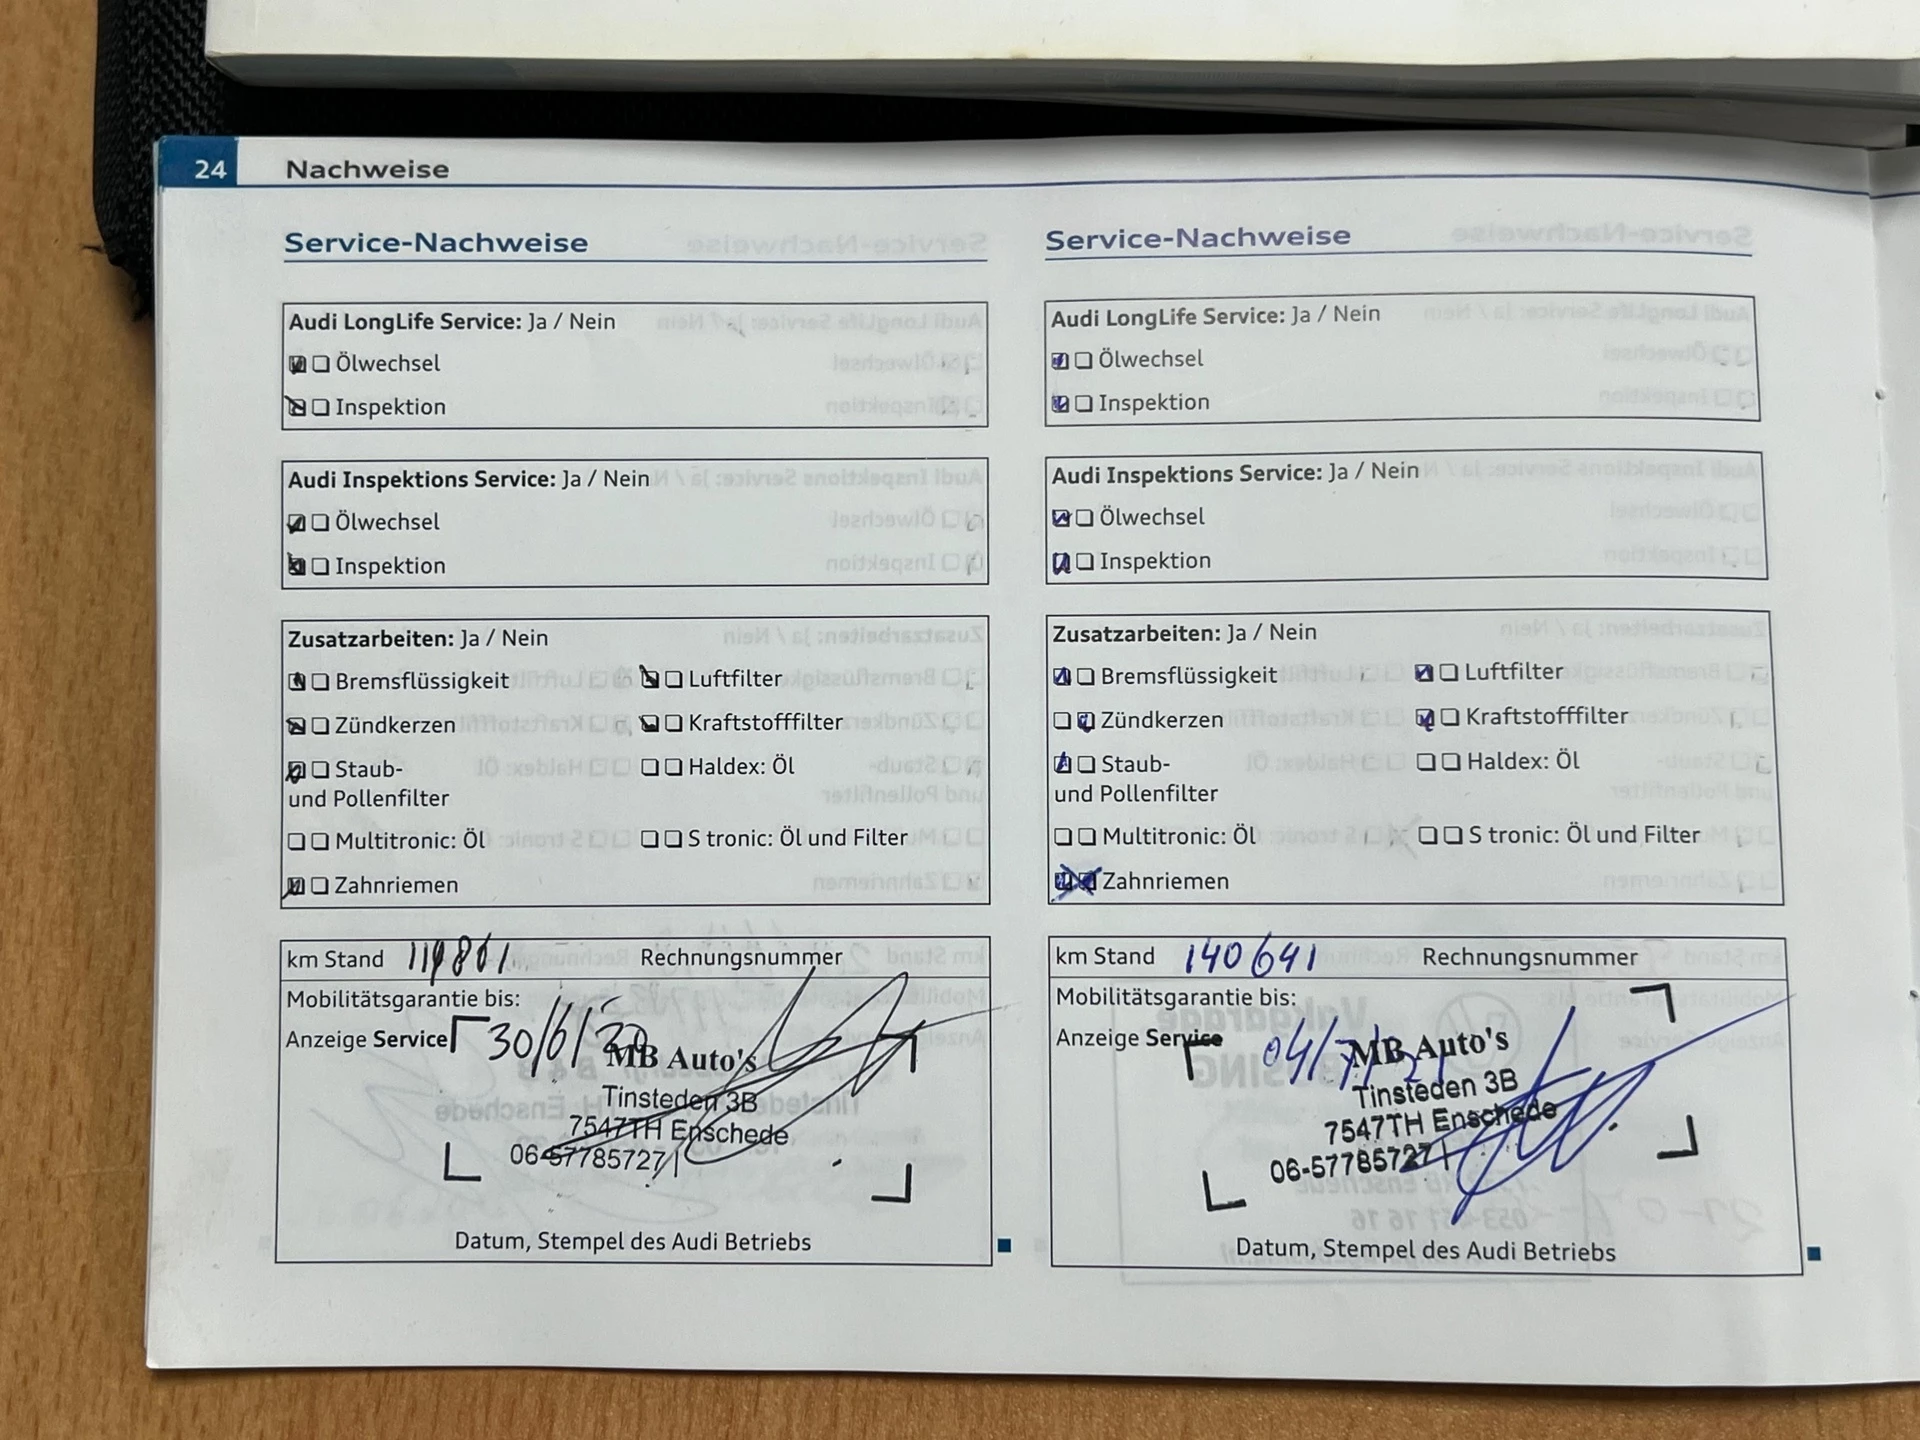 24 Nachweise
Service-Nachweise
Audi LongLife Service: Ja / Nein
Ölwechsel
Inspektion
Audi Inspektions Service: Ja / Nein
Ölwechsel
Inspektion
Zusatzarbeiten: Ja / Nein
Bremsflüssigkeit Luftfilter
Zündkerzen Kraftstofffilter
Staub- Haldex: Öl
und Pollenfilter
Multitronic: Öl S tronic: Öl und Filter
Zahnriemen
km Stand 119861 Rechnungsnummer
Mobilitätsgarantie bis:
Anzeige Service 30/6/20
MB Auto's
Tinsteden 3B
7547TH Enschede
06-57785727
Datum, Stempel des Audi Betriebs
Service-Nachweise
Audi LongLife Service: Ja / Nein
Ölwechsel
Inspektion
Audi Inspektions Service: Ja / Nein
Ölwechsel
Inspektion
Zusatzarbeiten: Ja / Nein
Bremsflüssigkeit Luftfilter
Zündkerzen Kraftstofffilter
Staub- Haldex: Öl
und Pollenfilter
Multitronic: Öl S tronic: Öl und Filter
Zahnriemen
km Stand 140641 Rechnungsnummer
Mobilitätsgarantie bis:
Anzeige Service
MB Auto's
Tinsteden 3B
7547TH Enschede
06-57785727
Datum, Stempel des Audi Betriebs